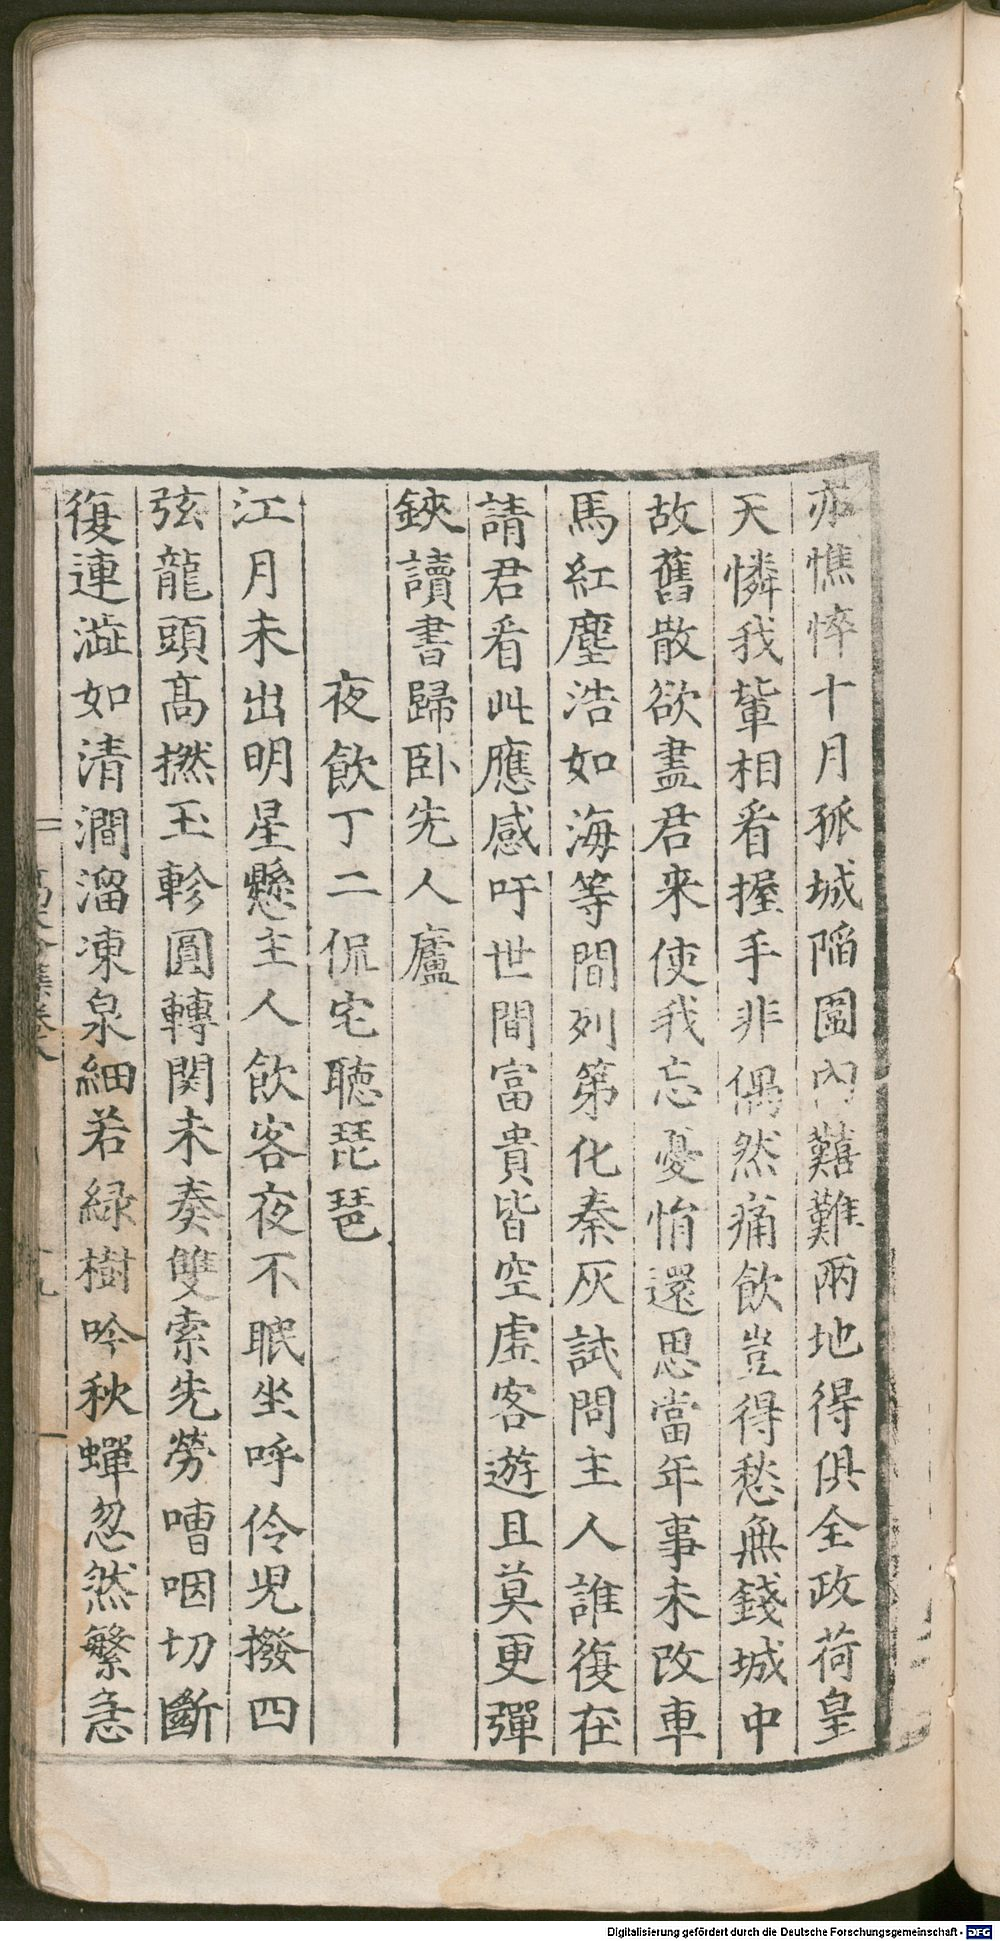 亦憔悴十月孤城陷圍內艱難兩地得俱全政荷皇
天憐我軰相看握手非偶然痛飲豈得愁無錢城中
故舊散欲盡君来使我忘憂悁還思當年事未改車
馬紅塵浩如海等間列第化秦灰試問主人誰復在
請君看此應感吁世間富貴皆空虛客遊且莫更彈
鋏讀書歸卧先人廬
夜飲丁二侃宅聽琵琶
江月未出明星懸主人飲客夜不眠坐呼伶児撥四
弦龍頭高撚玉軫圓轉関未奏雙索先勞嘈咽切斷
復連澁如清澗溜凍泉細若緑樹吟秋蟬忽然繁急
Digitalisierung gefördert durch die Deutsche Forschungsgemeinschaft - DFG